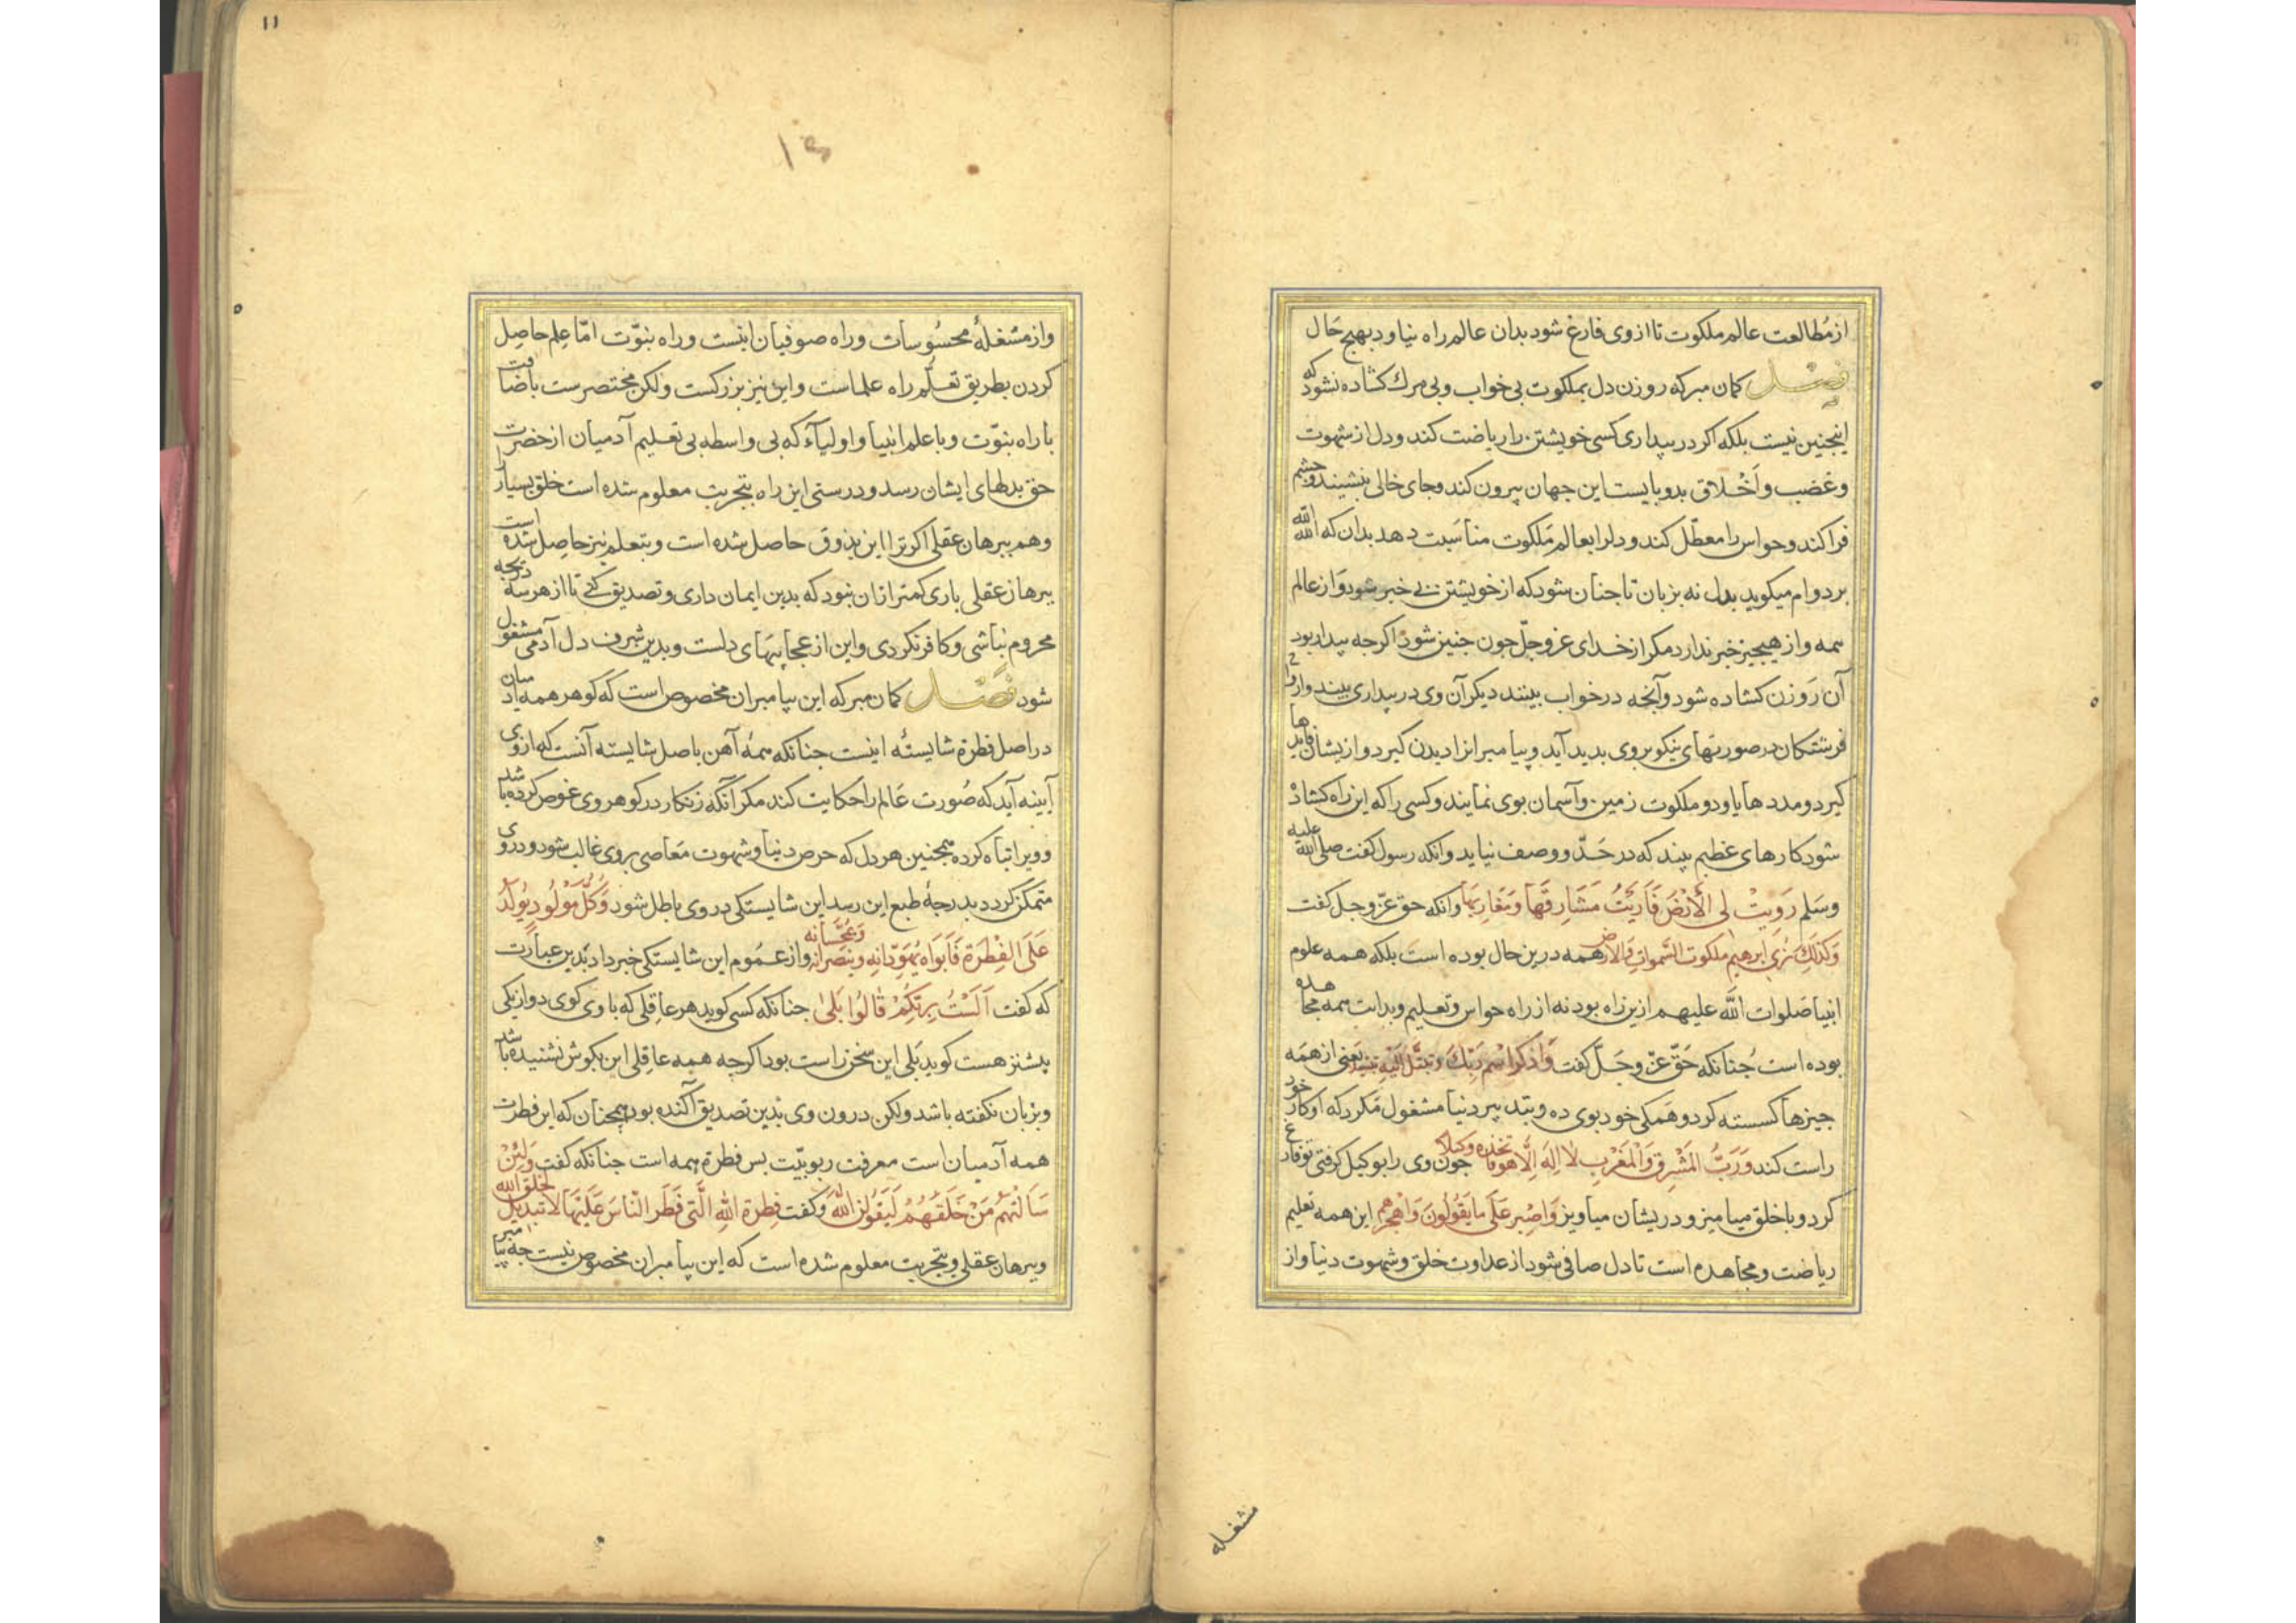 از مُطالعت عالم ملکوت تا ازوی فارغ شود بدان عالم راه نیاود بهیج حَال
فصل کمان مبر که روزن دل بملکوت بی خواب و بی مرك کشاده نشود که
اینجنین نیست بلکه اکر در بیداری کسی خویشتن را ریاضت کند و دل از شهوت
و غضب و اَخْلاق بد و بایست این جهان بیرون کند و جای خالی بنشیند و جشم
فرا کند و حواس را معطّل کند و دلرا بعالم مَلکوت مناسَبت دهد بدان که الله الله
بر دوام میکوید بدل نه بزبان تا جنان شود که از خویشتن بی خبر شود وَ از عالم
همه و از هیجیز خبر ندارد مکر از خدای عزوجلّ جون جنین شود اکرجه بیدار بود
آن رَوزن کشاده شود و آنجه در خواب بینند دیکران وی در بیداری بیند و ارواح
فرشتکان در صورتهای نیکو بر وی بدید آید و پیامبرانرا دیدن کیرد و ازیشان فایدها
کیرد و مددها یاود و ملکوت زمین و آسمان بوی نمایند و کسی را که این راه کشاد
شود کارهای عظیم بیند که در حَدّ و وصف نیاید و انکه رسول کفت صلی الله علیه
وسَلم رُوِیتْ لی الْأَرْضُ فَاُرِیَتُ مَشَارِقَهَا وَمَغَارِبَهَا وانکه حق عزّ و جل کفت
وَکَذٰلِكَ نُرِی ابرهیم ملکوت السَّمواتِ وَالارض همه درین حال بوده است بلکه همه علوم
انبیا صَلوات اللّه علیهم ازین راه بود نه از راه حواس و تعلیم و بدایت همه مجاهده
بوده است جُنانکه حَقّ عزّ و جَلّ کفت وَاذکُرِ اسْم رَبِّكَ وَتبَتَّل اِلَیْهِ تبتیلا یَعنی از همَه
جیزها کسسته کرد و هَمکی خود بوی ده و بتدبیر دنیا مشغول مَکرد که او کار خود
راست کند وَرَبُّ المَشْرِقِ وَالْمَغْرِبِ لا اِلهَ اِلَّا هو فاتخذه وکیلا جون وی را بوکیل کرفتی تو فارغ
کرد و با خلق میامیز و دریشان میاویز وَاصْبِر عَلَی مَا یَقُولُونَ وَاهْجُرهم این همه تعلیم
ریاضت و مجاهده است تا دل صافی شود از عداوت خلق و شهوت دنیا و از
مشغله
۱۱
و از مشغلهٔ محسُوسات و راه صوفیان اینست و راه نبوّت امّا عِلم حاصِل
کردن بطریق تعلّم راه علماست و این نیز بزرکست ولکن مختصرست باضافت
با راه نبوّت و با علم انبیا و اولیآء که بی واسطه بی تعلیم آدمیان از حضرت
حق بدلهای ایشان رسد و درستی این راه بتجربت معلوم شده است خلق بسیار را
و هم ببرهان عقلی اکر ترا این بذوق حاصل شده است و بتعلم نیز حاصِل شده است
ببرهان عقلی باری کمتر ازان نبود که بدین ایمان داری و تصدیق کنی تا از هر سه درجه
محروم نباشی و کافر نکردی و این از عجایبهای دلست و بدین شرف دل آدمی مشغول
شود فصل کمان مبر که این بپیامبران مخصوص است که کوهر همه آدمیان
در اصل فطرة شایستهٔ اینست جنانکه همهٔ آهن باصل شایسته آنست که از وی
آیینه آید که صُورت عَالم را حکایت کند مکر آنکه زنکار در کوهر وی غوص کرده باشد
و ویرا تباه کرده همجنین هر دل که حرص دنیا و شهوت مَعاصی بر وی غالب شود و در وی
متمکن کردد بدرجهٔ طبع این رسد این شایستکی در وی باطل شود وَکُلُّ مَوْلُودٍ یُولَدُ
عَلَی الفِطْرَة فَاَبَوَاهُ یُهَوِّدَانِهِ وینصِّرانِه وَیُمَجِّسَانِه و از عمُوم این شایستکی خبر داد بَدین عبارت
که کفت اَلَسْتُ بِرَبِّکُمْ قَالُوا بَلَیٰ جنانکه کسی کوید هر عاقلی که با وی کوی دو از یکی
بیشتر هست کوید بَلی این سخن راست بود اکرجه همه عاقلی این بکوش نشنیده باشد
و بزبان نکفته باشد ولکن درون وی بدین تصدیق آکنده بود همجنان که این فطرت
همه آدمیان است معرفت ربوبیّت بس فطرة همه است جنانکه کفت وَلَئِنْ
سَاَلْتَهُمْ مَنْ خَلَقَهُمْ لَیَقُولُنَّ اللّهُ وَکفت فِطرة اللهِ الَّتی فَطَر النَّاسَ عَلَیْهَا لا تبدیل لخلق الله
و ببرهان عقلی و بتجربت معلوم شده است که این بپیامبران مخصوص نیست جه پیامبر